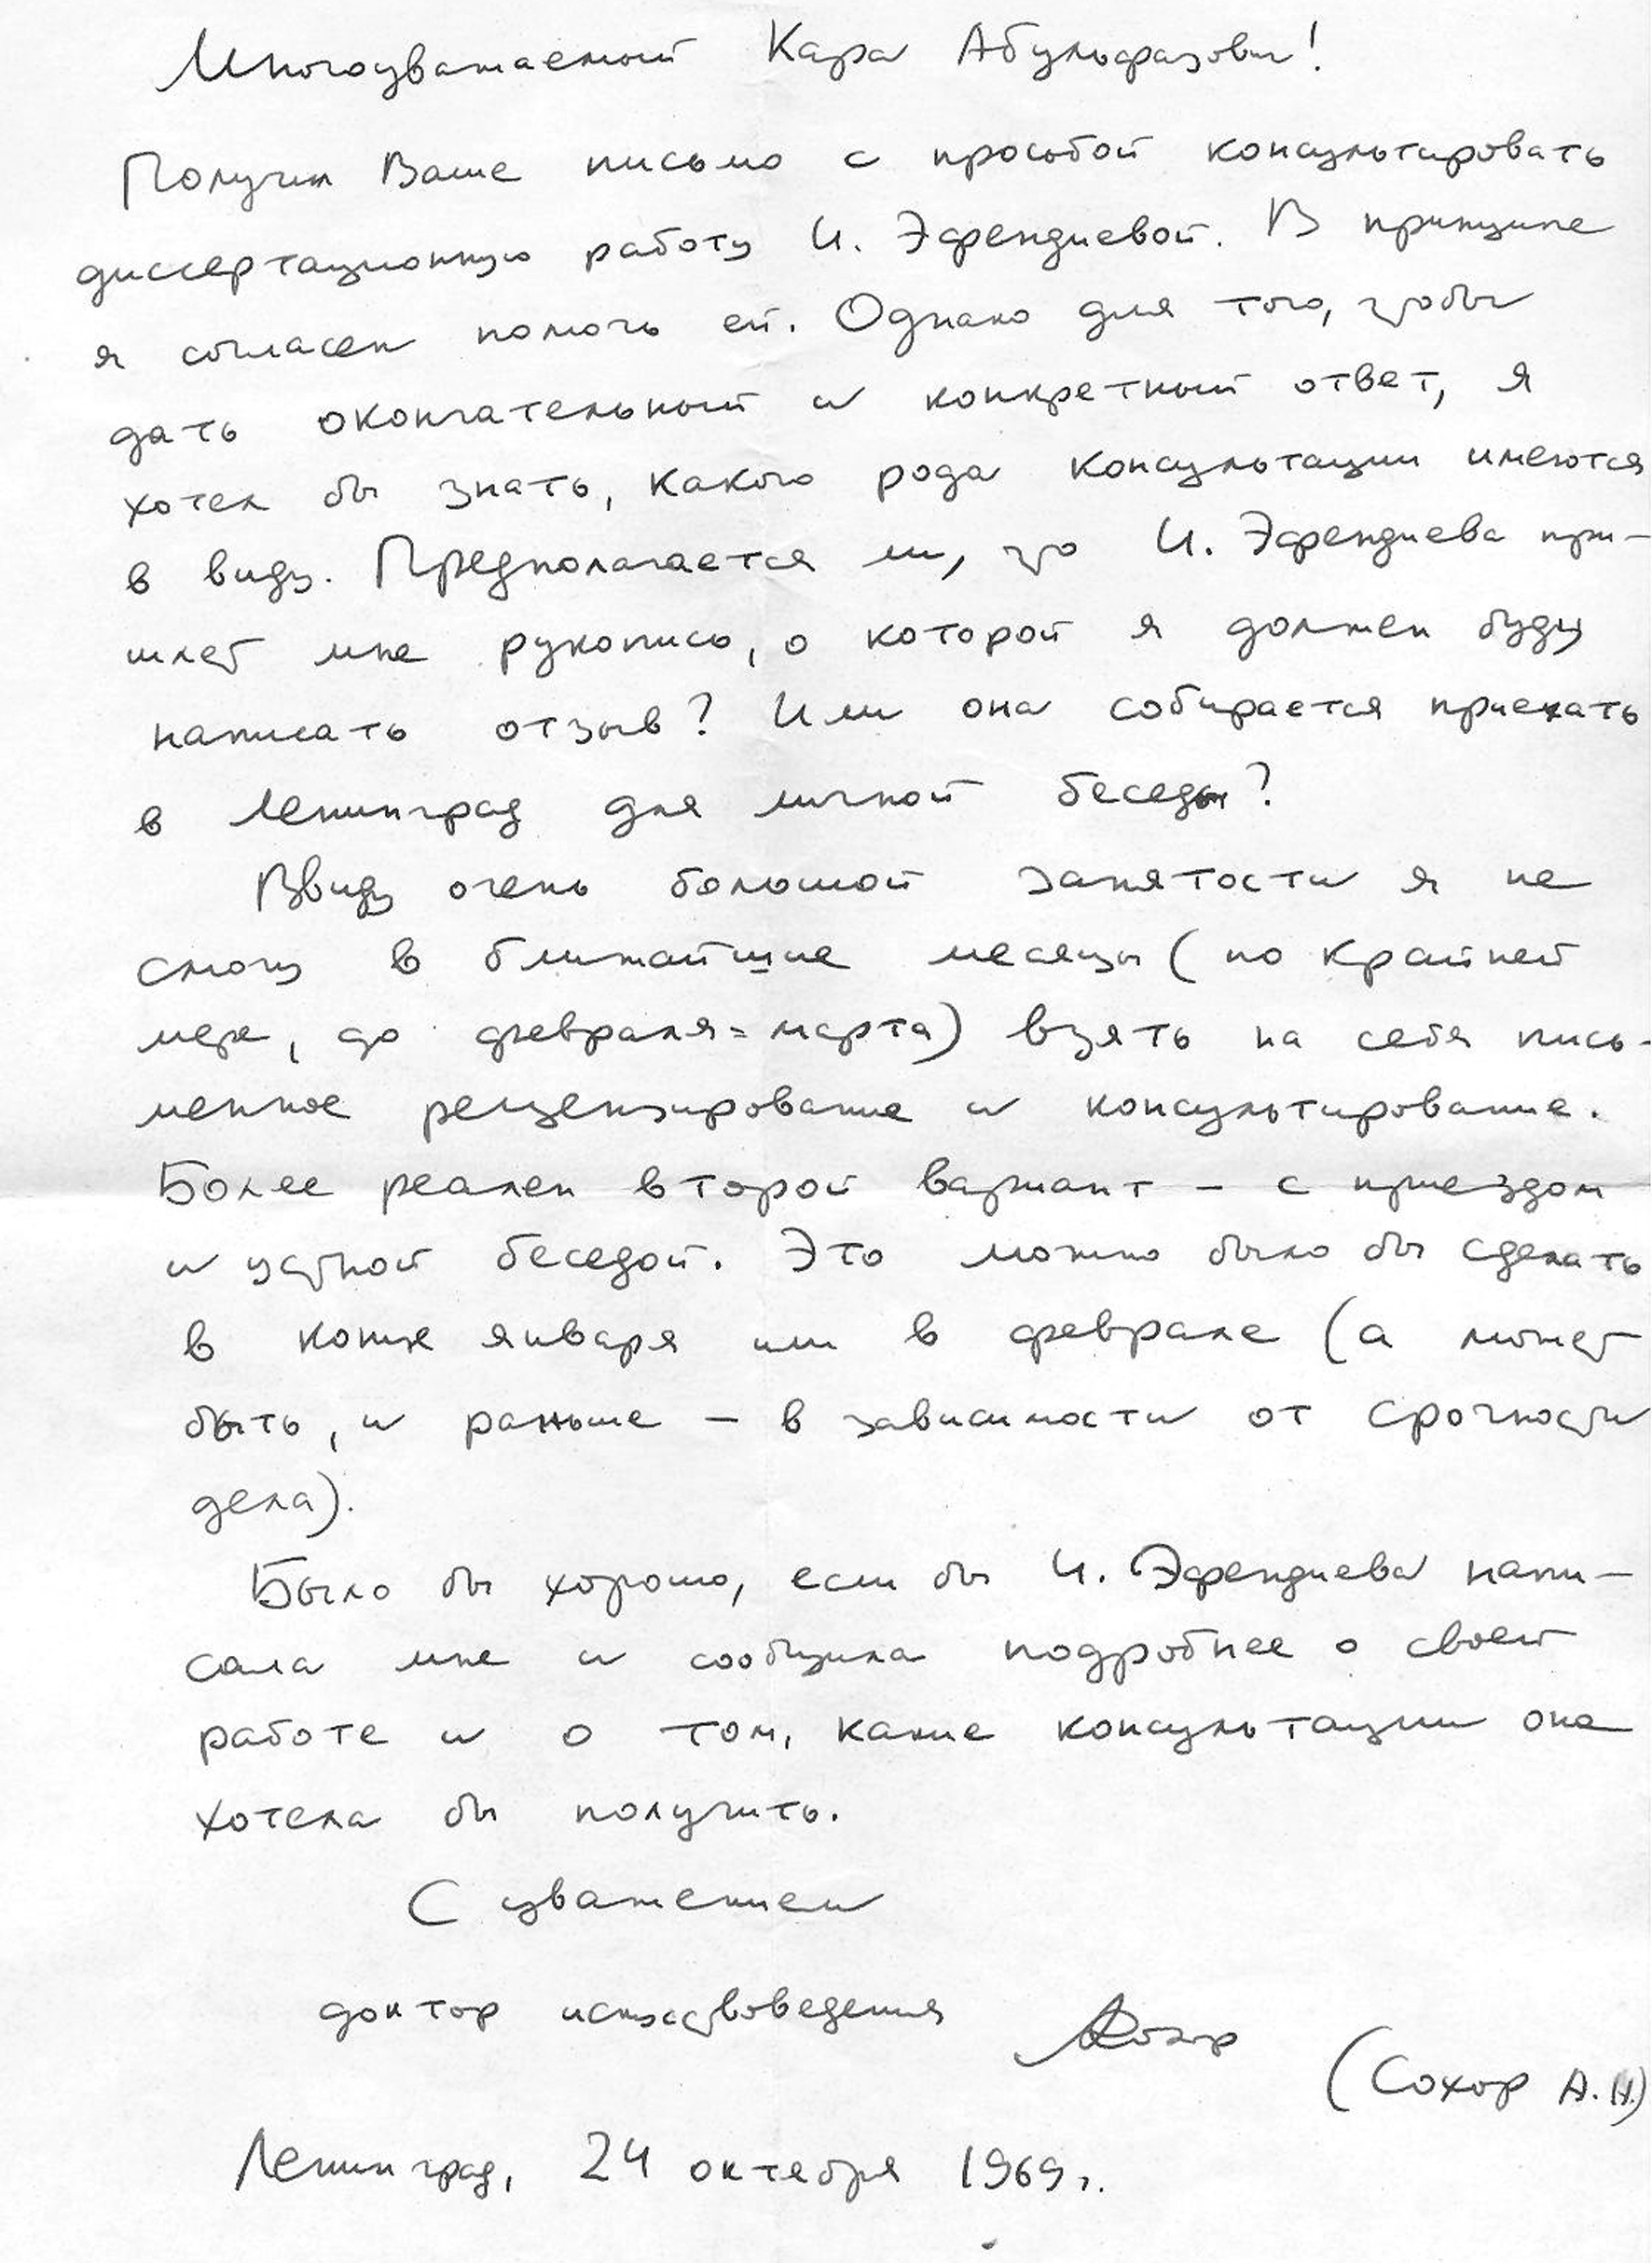 Многоуважаемый Кара Абульфазович!
Получил Ваше письмо с просьбой консультировать
диссертационную работу И. Эфендиевой. В принципе
я согласен помочь ей. Однако для того, чтобы
дать окончательный и конкретный ответ, я
хотел бы знать, какого рода консультации имеются
в виду. Предполагается ли, что И. Эфендиева при-
шлет мне рукопись, о которой я должен буду
написать отзыв? Или она собирается приехать
в Ленинград для личной беседы?
Ввиду очень большой занятости я не
смогу в ближайшие месяцы (по крайней
мере, до февраля-марта) взять на себя пись-
менное рецензирование и консультирование.
Более реален второй вариант – с приездом
и устной беседой. Это можно было бы сделать
в конце января или в феврале (а может
быть, и раньше – в зависимости от срочности
дела).
Было бы хорошо, если бы И. Эфендиева напи-
сала мне и сообщила подробнее о своей
работе и о том, какие консультации она
хотела бы получить.
С уважением
доктор искусствоведения Сохор
(Сохор А.Н.)
Ленинград, 24 октября 1969 г.